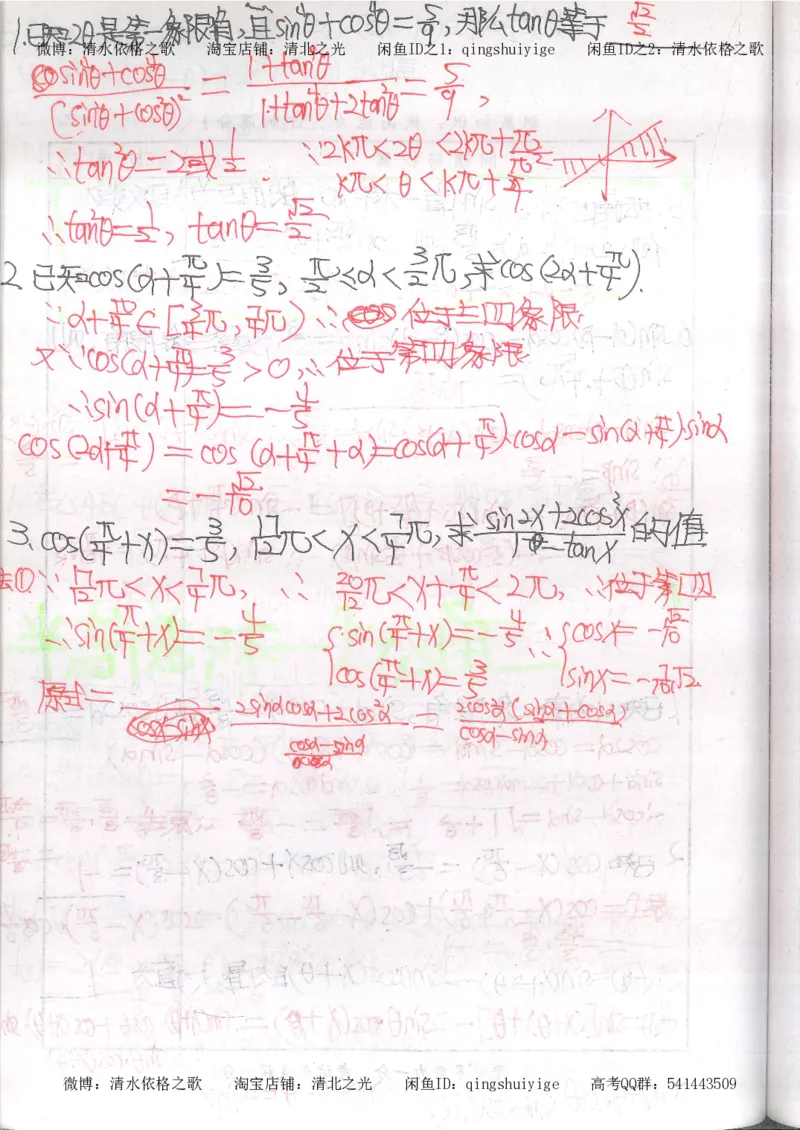 1.已知2θ是第一象限角,且sin⁴θ+cos⁴θ=5/9,那么tanθ等于 √2/2
微博：清水依格之歌 淘宝店铺：清北之光 闲鱼ID之1：qingshuiyige 闲鱼ID之2：清水依格之歌
sin⁴θ+cos⁴θ/(sin²θ+cos²θ)² = 1+tan⁴θ/1+tan⁴θ+2tan²θ = 5/9,
∴tan²θ=2或1/2 ∵2kπ<2θ<2kπ+π/2
kπ<θ<kπ+π/4
∴tan²θ=1/2, tanθ=√2/2
2.已知cos(α+π/4)=3/5, π/2≤α<3/2π,求cos(2α+π/4).
∵α+π/4∈[3/4π,7/4π) ∴位于三四象限
又∵cos(α+π/4)=3/5>0,∴位于第四象限
∴sin(α+π/4)=-4/5
cos(2α+π/4)=cos(α+π/4+α)=cos(α+π/4)·cosα-sin(α+π/4)sinα
=-√2/10
3.cos(π/4+x)=3/5, 17/12π<x<7/4π,求 sin2x+2cos²x/1-tanx 的值
法①∵17/12π<x<7/4π, ∴20/12π<x+π/4<2π, ∴位于第四
∴sin(π/4+x)=-4/5 {sin(π/4+x)=-4/5 ∴{cosx=-√2/10
cos(π/4+x)=3/5 sinx=-7/10√2
原式= 2sinαcosα+2cos²α/(cosα-sinα/cosα) = 2cos²α(sinα+cosα)/cosα-sinα
微博：清水依格之歌 淘宝店铺：清北之光 闲鱼ID：qingshuiyige 高考QQ群：541443509